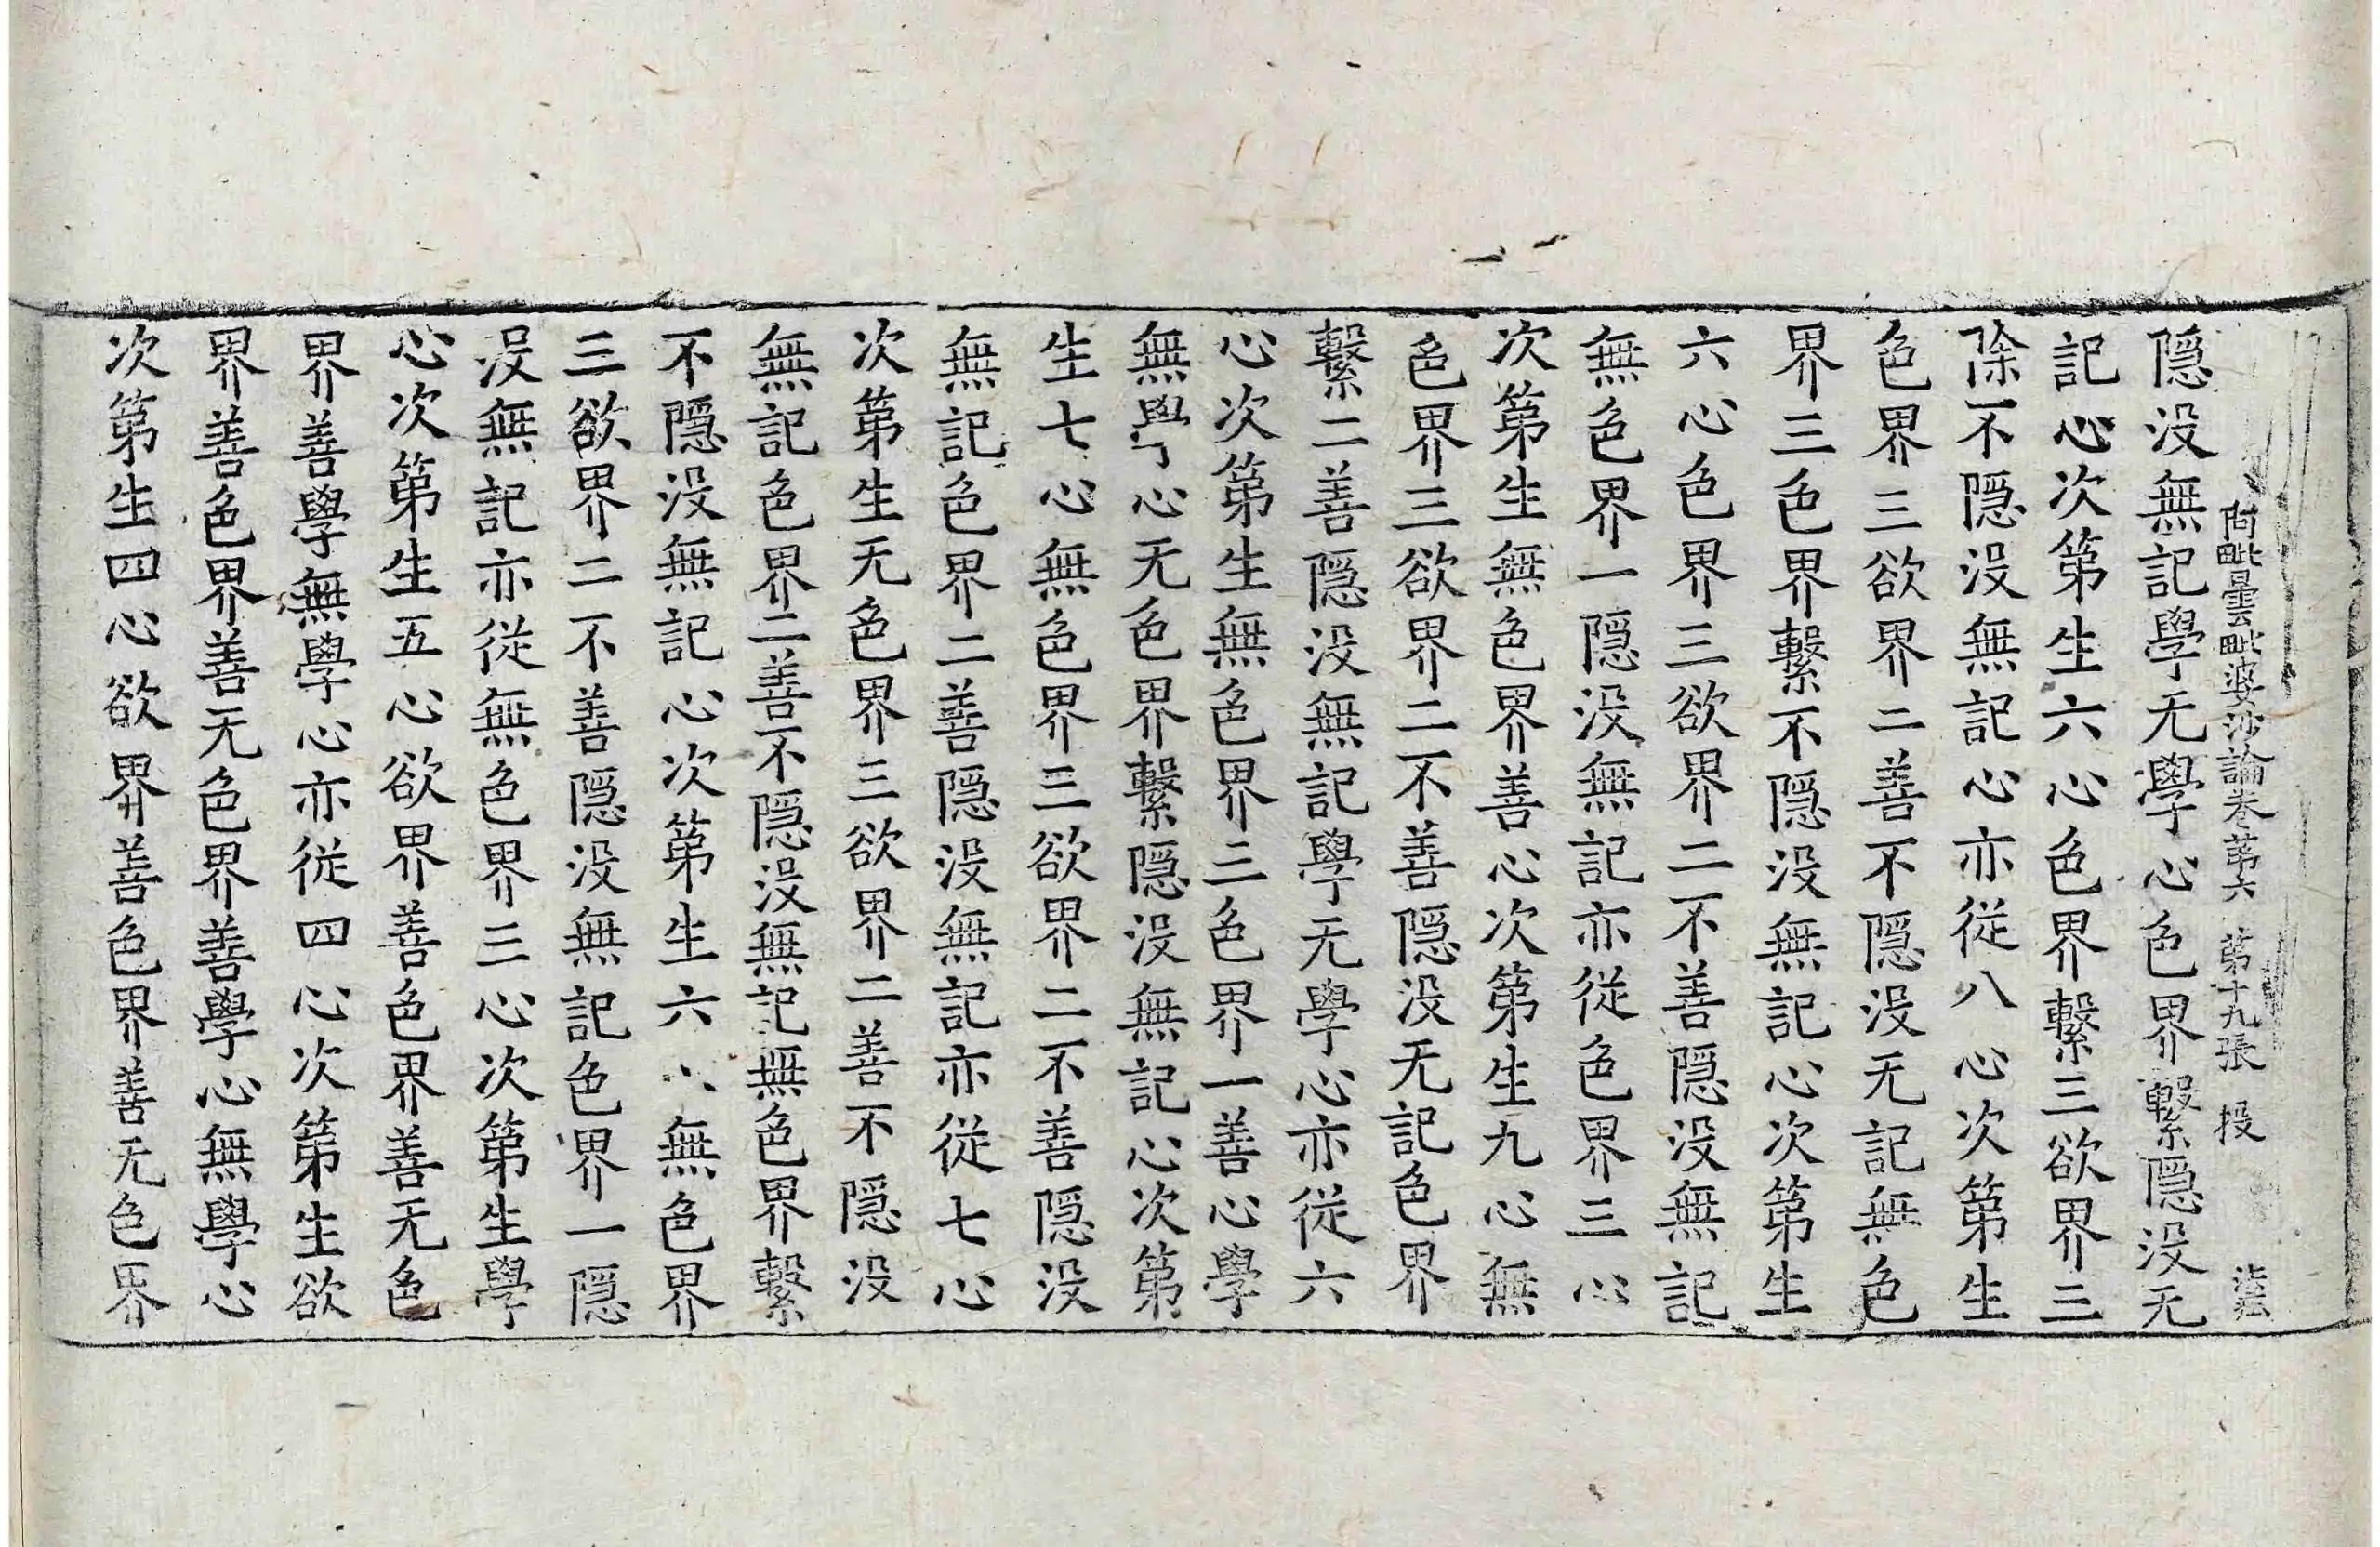 阿毗曇毗婆沙論卷第六 第十九張 投
隱没無記學无學心色界繫隱没无
記心次第生六心色界繫三欲界三
除不隱没無記心亦從八心次第生
色界三欲界二善不隱没无記無色
界三色界繫不隱没無記心次第生
六心色界三欲界二不善隱没無記
無色界一隱没無記亦從色界三心
次第生無色界善心次第生九心無
色界三欲界二不善隱没无記色界
繫二善隱没無記學无學心亦從六
心次第生無色界三色界一善心學
無學心无色界繫隱没無記心次第
生七心無色界三欲界二不善隱没
無記色界二善隱没無記亦從七心
次第生无色界三欲界二善不隱没
無記色界二善不隱没無記無色界繫
不隱没無記心次第生六心無色界
三欲界二不善隱没無記色界一隱
没無記亦從無色界三心次第生學
心次第生五心欲界善色界善无色
界善學無學心亦從四心次第生欲
界善色界善无色界善學心無學心
次第生四心欲界善色界善无色界